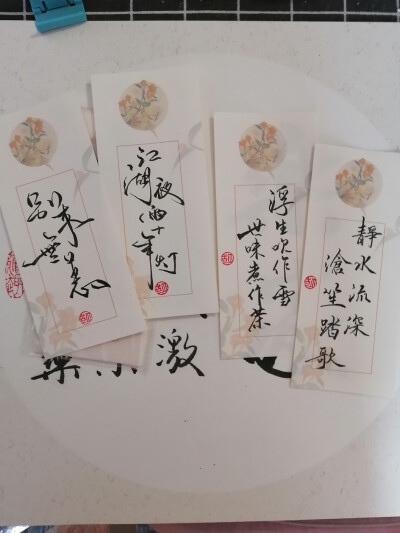 別来
無恙
江湖
夜雨十年灯
浮生吹作雪
世味煮作茶
靜水流深
滄笙踏歌
激